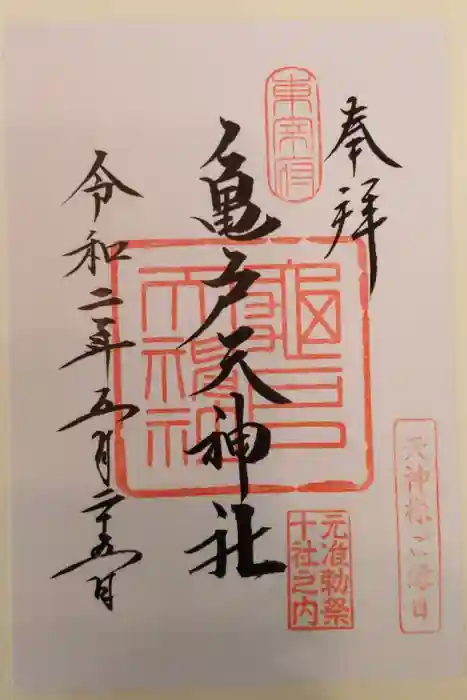 奉拝
東宰府
亀戸天神社
亀戸天神社
元准勅祭
十社之内
天神様ご縁日
令和二年五月二十五日